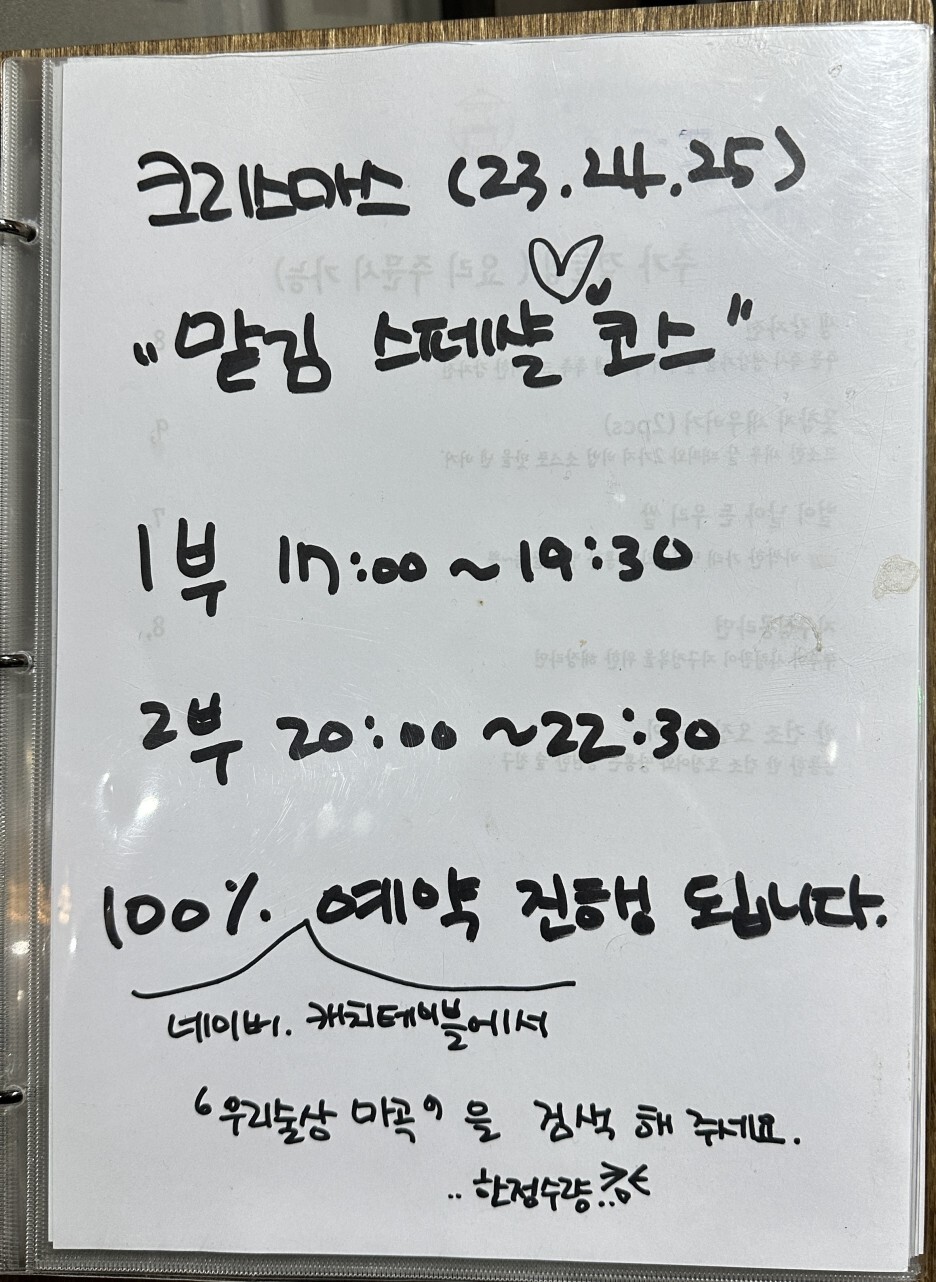 크리스마스 (23.24.25)
"맡김 스페샬 코스"
1부 17:00~19:30
2부 20:00~22:30
100% 예약 진행 됩니다.
네이버. 캐치테이블에서
'우리술상 마곡'을 검색 해 주세요.
.. 한정수량..